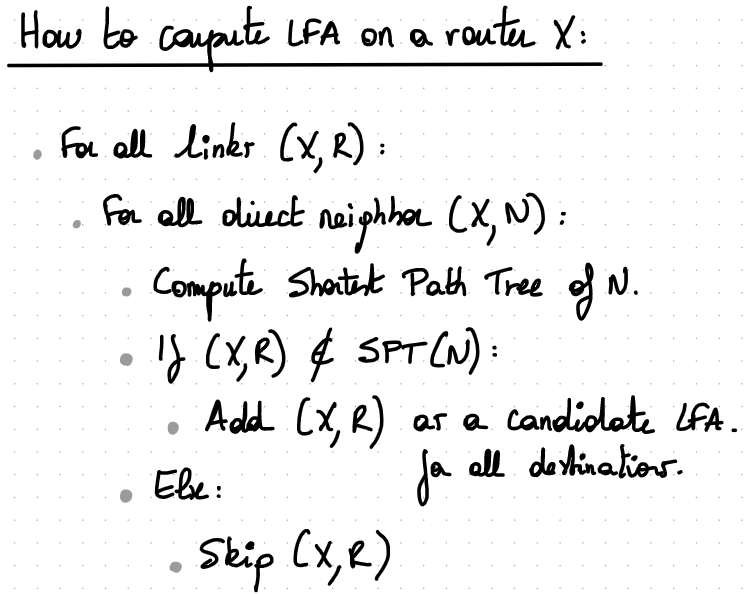 How to compute LFA on a router X:
• For all links (X, R) :
• For all direct neighbor (X, N) :
• Compute Shortest Path Tree of N.
• If (X,R) ∉ SPT(N) :
• Add (X, R) as a candidate LFA.
for all destinations.
• Else :
• Skip (X, R)